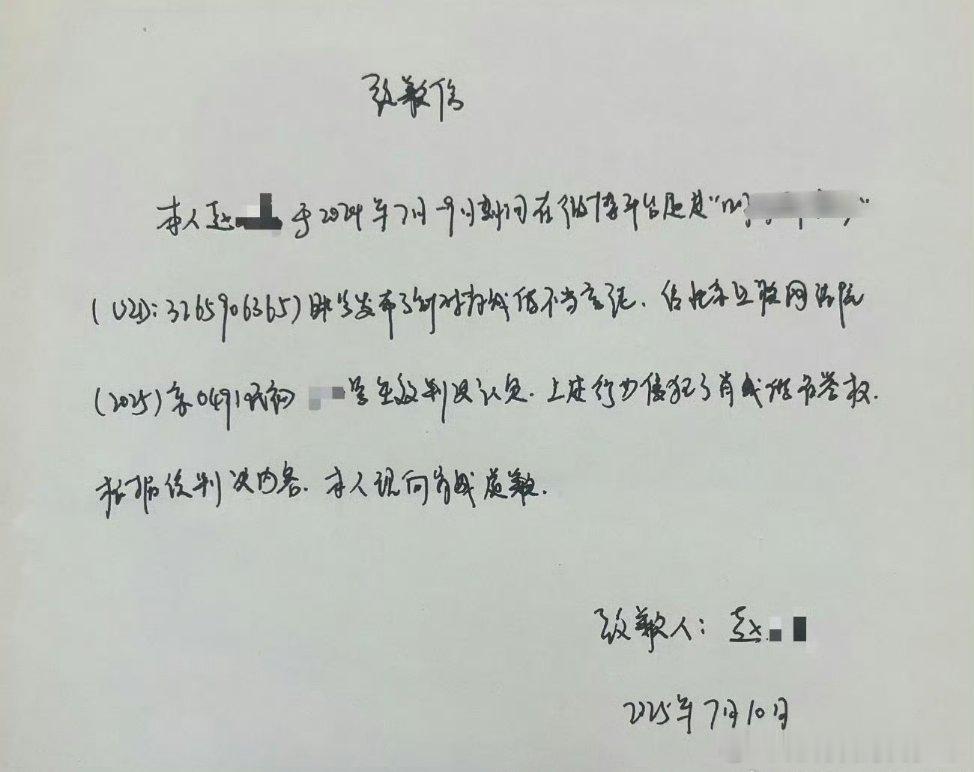 致歉信
本人赵 于2024年7月-9月期间在微博平台通过"
(UID: 3265906365)账号发布了针对肖战的不当言论.经北京互联网法院
(2025)京0491民初 号生效判决认定.上述行为侵犯了肖战的名誉权.
根据该判决内容.本人现向肖战道歉.
致歉人: 赵
2025年7月10日